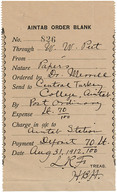 AINTAB ORDER BLANK
No. 826
Through W. W. Peet
From
Note Papers
Ordered by Dr. Merrill
Send to Central Turkey
College Aintab
By Post Ordinary
Expense lt. 70
100
Charge to
Aintab Station
Payment Deposit 70 lt.
Date Aug 31, 1912 100
L.R.F.
Treas.
H.B.H.